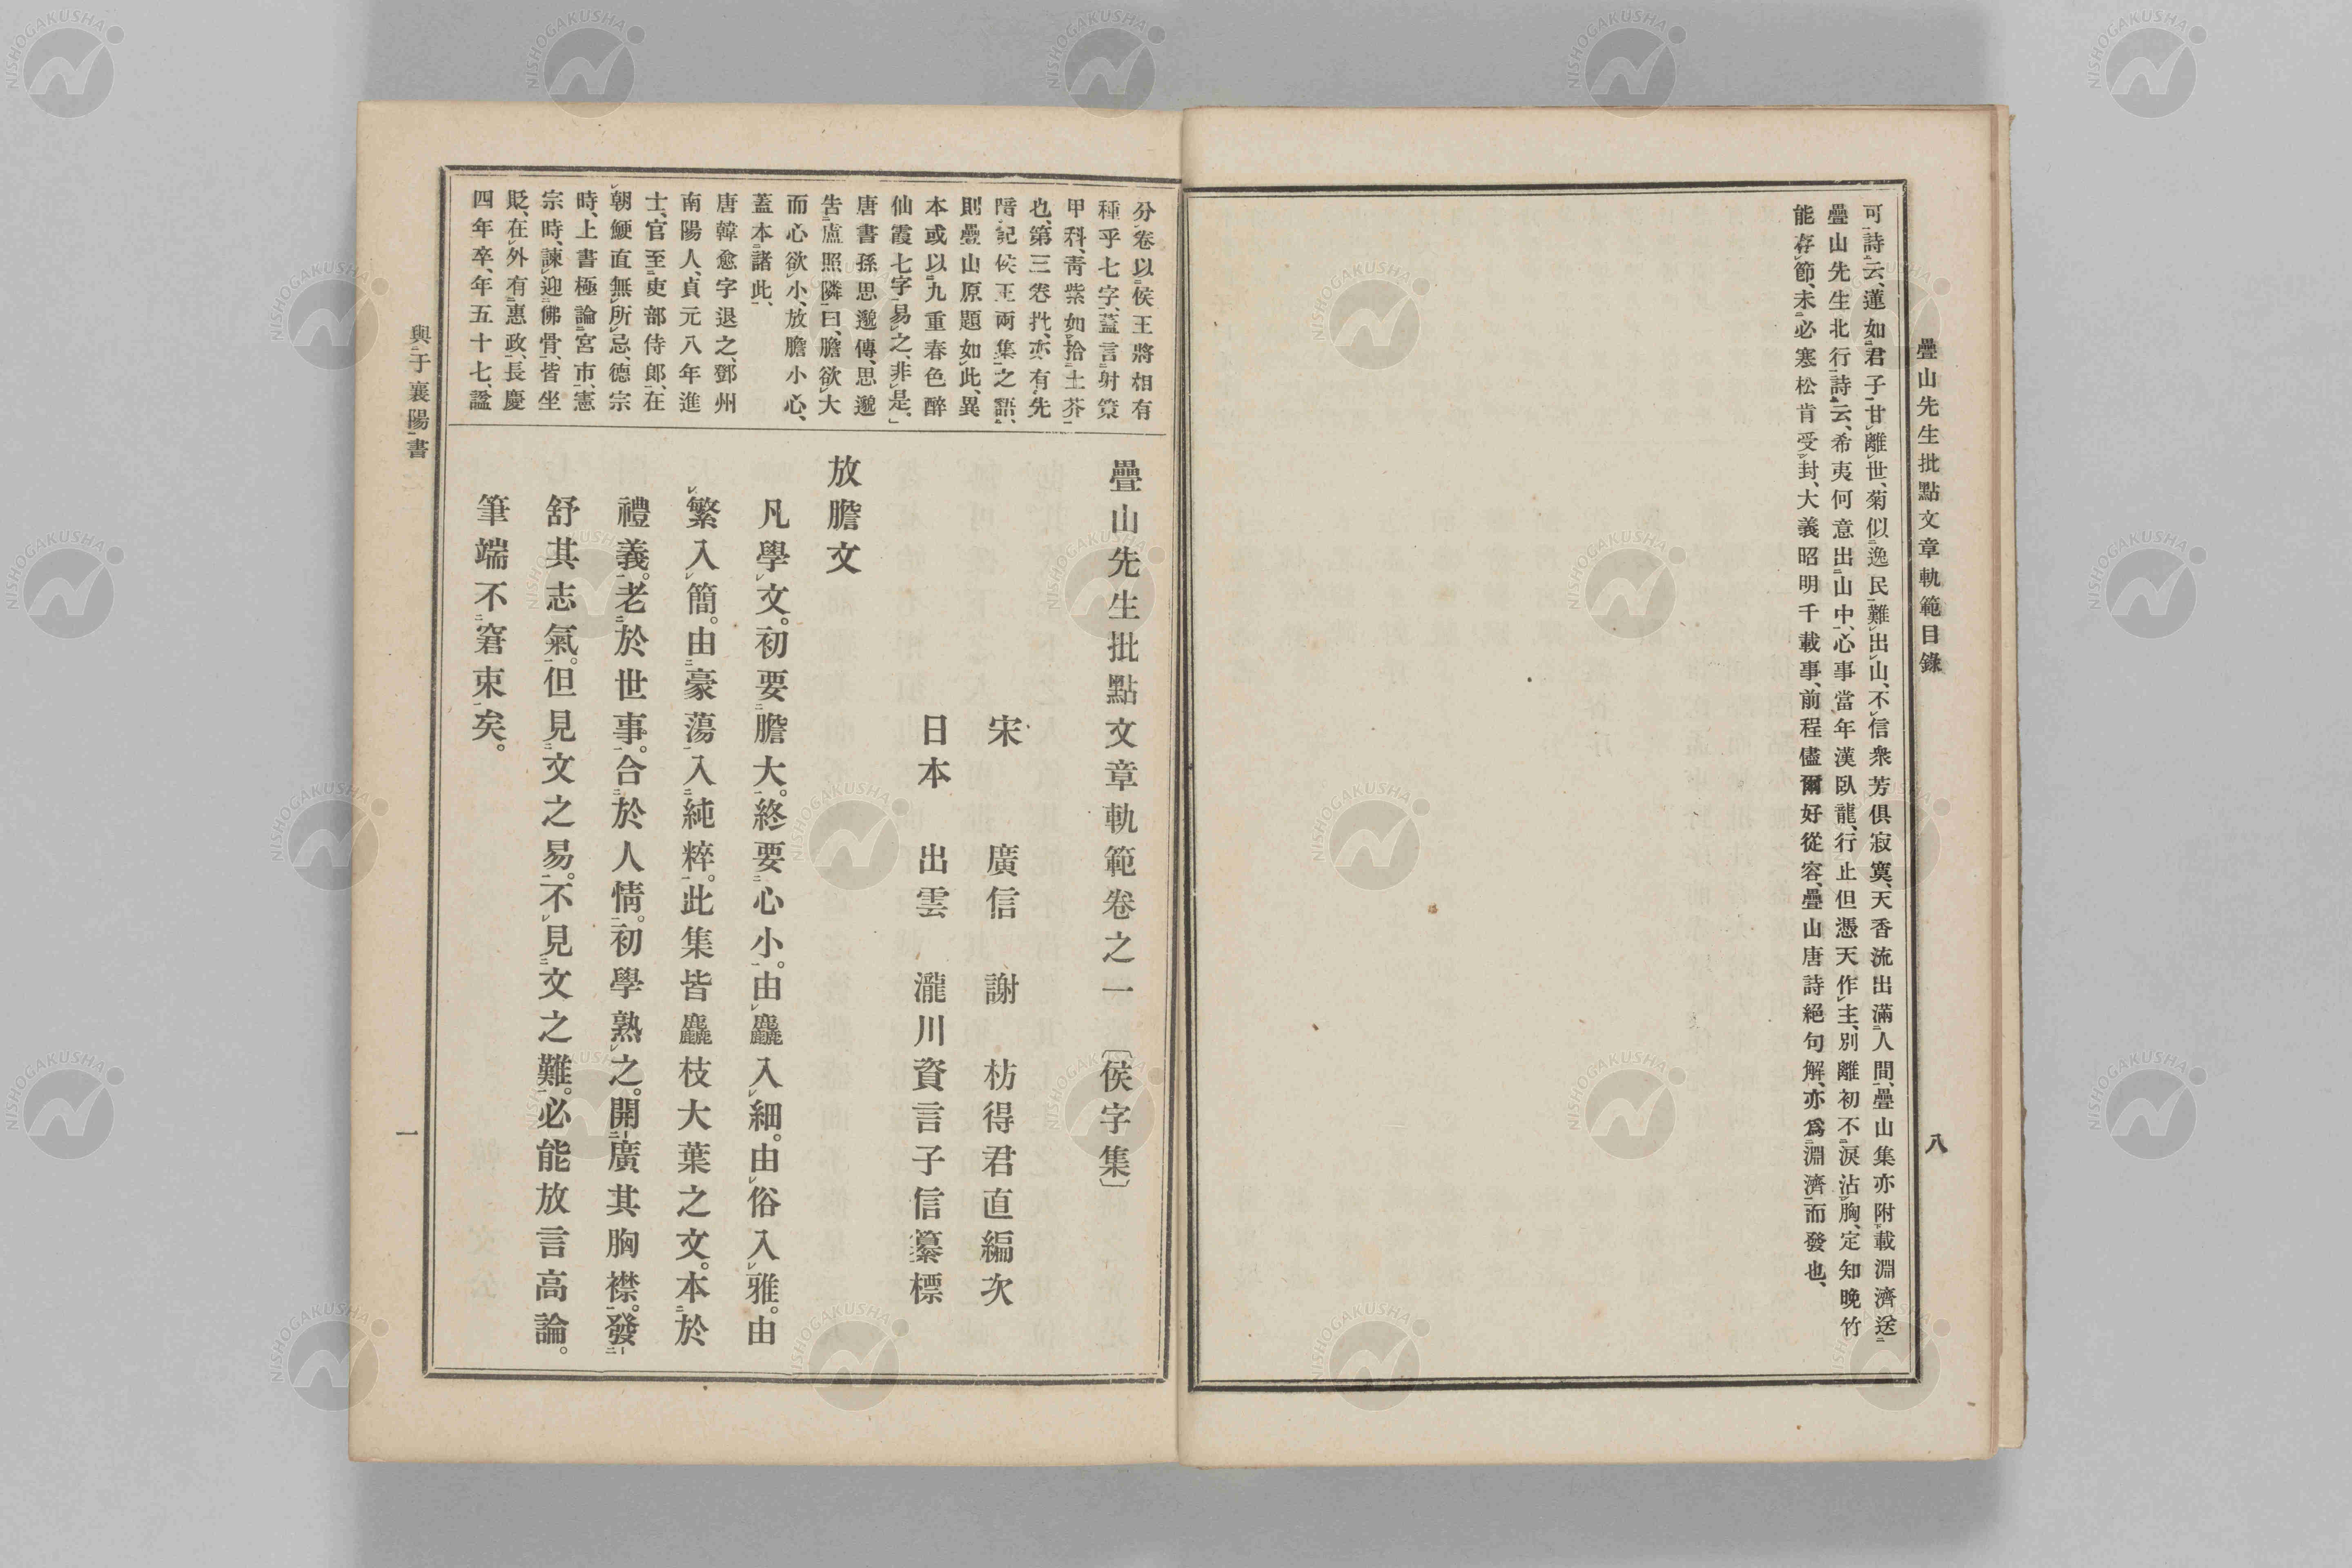 疊山先生批點文章軌範目錄
八
可詩云、蓮如君子甘離世、菊似逸民難出山、不信衆芳俱寂寞、天香流出滿人間、疊山集亦附載淵濟送
疊山先生北行詩云、希夷何意出山中、心事當年漢臥龍、行止但憑天作主、別離初不淚沾胸、定知晚竹
能存節、未必寒松肯受封、大義昭明千載事、前程儘爾好從容、疊山唐詩絕句解、亦爲淵濟而發也、
分卷以侯王將相有
種乎七字、蓋言射策
甲科、靑紫如拾土芥
也、第三卷批、亦有先
階記侯王兩集之語、
則疊山原題如此、異
本或以九重春色醉
仙霞七字易之、非是、
唐書孫思邈傳、思邈
告盧照隣曰、膽欲大
而心欲小、放膽小心、
蓋本諸此、
唐韓愈字退之、鄧州
南陽人、貞元八年進
士、官至吏部侍郎、在
朝鯁直無所忌、德宗
時、上書極論宮市、憲
宗時、諫迎佛骨、皆坐
貶、在外有惠政、長慶
四年卒、年五十七、謚
疊山先生批點文章軌範卷之一〔侯字集〕
宋 廣信 謝 枋得君直編次
日本 出雲 瀧川資言子信纂標
放膽文
凡學文。初要膽大。終要心小。由麤入細。由俗入雅。由
繁入簡。由豪蕩入純粹。此集皆麤枝大葉之文。本於
禮義。老於世事。合於人情。初學熟之。開廣其胸襟。發
舒其志氣。但見文之易。不見文之難。必能放言高論。
筆端不窘束矣。
與于襄陽書
一
NISHOGAKUSHA